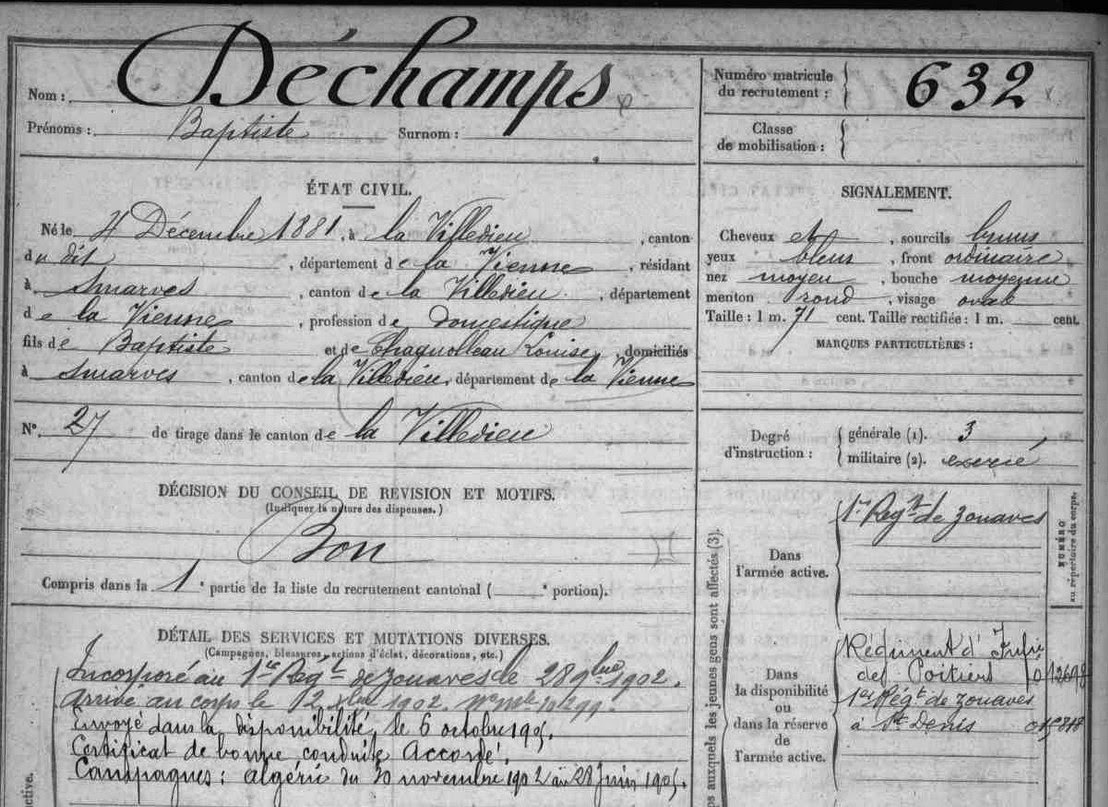 Nom : Déchamps
Prénoms : Baptiste Surnom :
Numéro matricule
du recrutement : 632
Classe
de mobilisation :
ÉTAT CIVIL.
Né le 4 Décembre 1881, à la Villedieu, canton
du dit, département de la Vienne, résidant
à Smarves, canton de la Villedieu, département
de la Vienne, profession de domestique
fils de Baptiste et de Chagnolleau Louise, domiciliés
à Smarves, canton de la Villedieu, département de la Vienne
N°. 27 de tirage dans le canton de la Villedieu
SIGNALEMENT.
Cheveux et, sourcils bruns
yeux bleus, front ordinaire
nez moyen, bouche moyenne
menton rond, visage ovale
Taille : 1 m. 71 cent. Taille rectifiée : 1 m. cent.
MARQUES PARTICULIÈRES :
Degré
d'instruction :
générale (1). 3
militaire (2). exercé
DÉCISION DU CONSEIL DE RÉVISION ET MOTIFS.
(Indiquer la nature des dispenses.)
Bon
Compris dans la 1e partie de la liste du recrutement cantonal ( e portion).
DÉTAIL DES SERVICES ET MUTATIONS DIVERSES.
(Campagnes, blessures, actions d'éclat, décorations, etc.)
Incorporé au 1er Régt de Zouaves le 28 9bre 1902.
Arrivé au corps le 1902. nº mle 10299.
Envoyé dans la disponibilité, le 6 octobre 1905.
Certificat de bonne conduite Accordé.
Campagnes : Algérie du 30 novembre 1902 au 28 Juin 1905.
ps auxquels les jeunes gens sont affectés (3).
Dans
l'armée active.
1er Régt de Zouaves
NUMÉRO
au répertoire du corps.
Dans
la disponibilité
ou
dans la réserve
de
l'armée active.
Régiment d'Infie
de Poitiers
1er Régt de Zouaves
à St Denis
active.